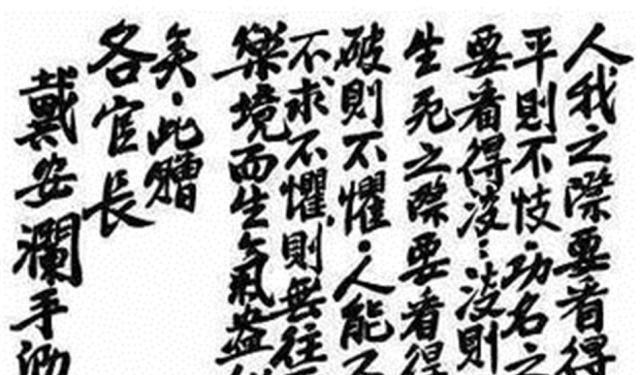 人我之際要看得
平則不忮·功名之
要看得淡:淡則
生死之際要看得
破則不懼·人能不
不求不懼,則無往
樂境而生氣盎
矣·此贈
各官長
戴安瀾手泐